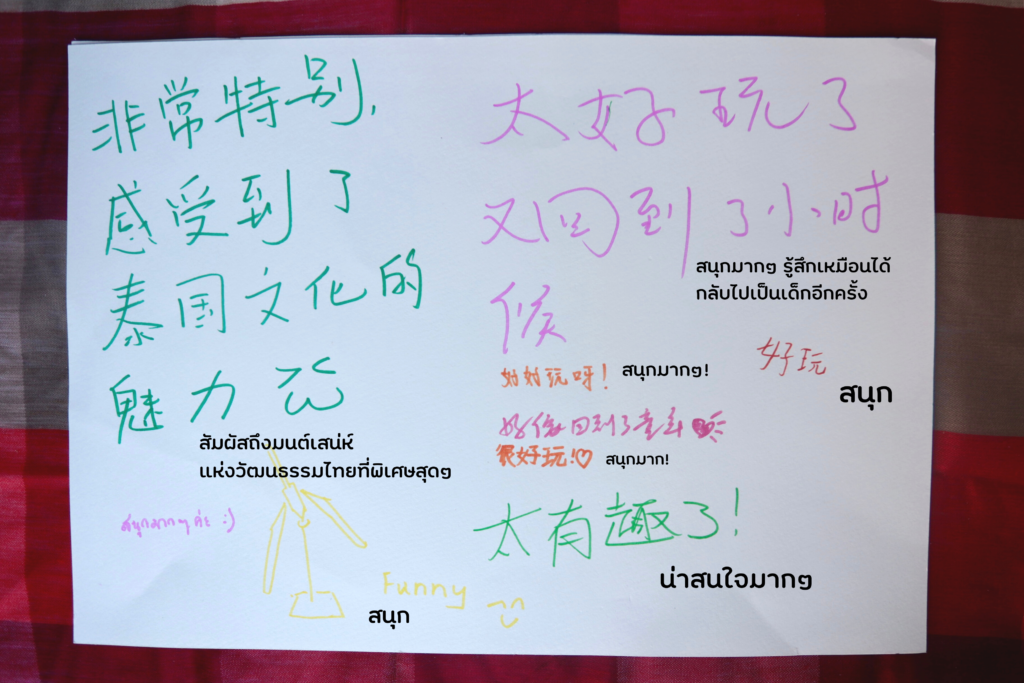 非常特别,
感受到了
泰国文化的
魅力
สัมผัสถึงมนต์เสน่ห์
แห่งวัฒนธรรมไทยที่พิเศษสุดๆ
สนุกมากๆ ค่ะ :)
Funny
สนุก
太好玩了
又回到了小时
候
สนุกมากๆ รู้สึกเหมือนได้
กลับไปเป็นเด็กอีกครั้ง
好玩
สนุก
好好玩呀!
สนุกมากๆ!
好像回到了童年
很好玩!♡
สนุกมาก!
太有趣了!
น่าสนใจมากๆ